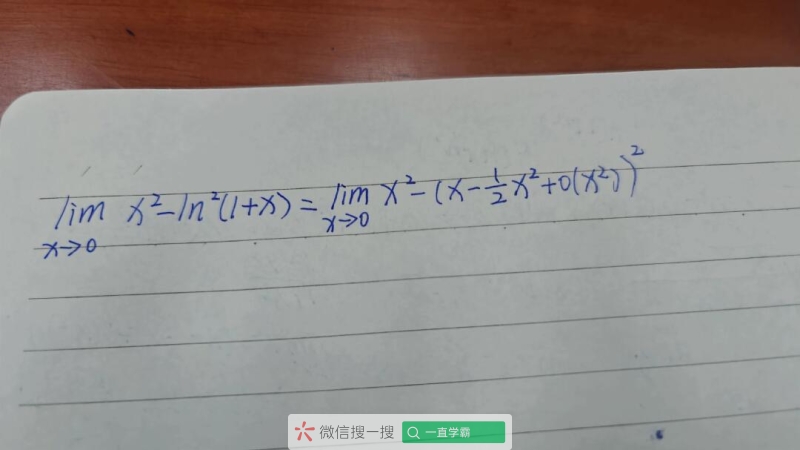 lim x→0 x²-ln²(1+x) = lim x→0 x²-(x-½x²+o(x²))²
微信搜一搜 一直学霸